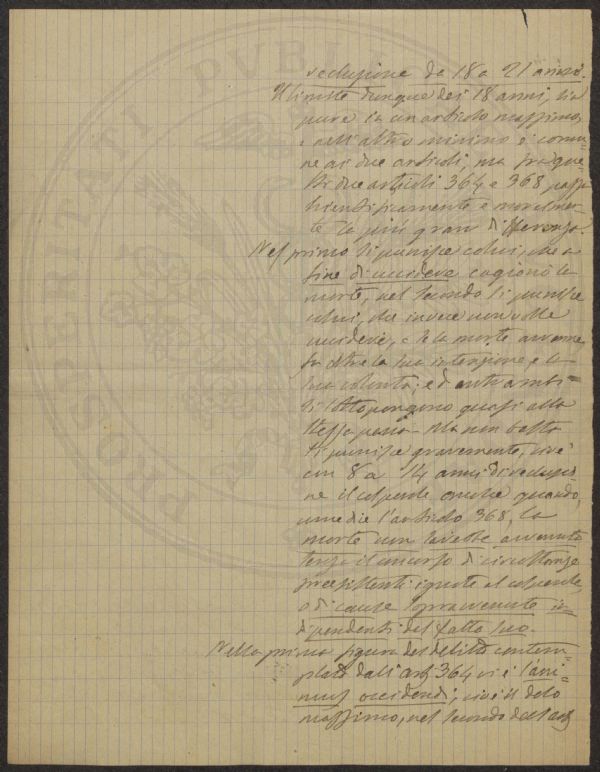 reclusione da 18 a 21 anni.
Il limite dunque dei 18 anni, sia
pure in un articolo massimo,
e nell'altro minimo è comu-
ne ai due articoli, ma fra que-
sti due articoli 364 e 368 passa
scientificamente e moralmen-
te la più gran differenza.
Nel primo si punisce colui, che a
fine di uccidere cagionò la
morte, nel secondo si punisce
colui, che invece non volle
uccidere, e se la morte avvenne
fu oltre la sua intenzione, e la
sua volontà; ed entrambi
si sottopongono quasi alla
stessa pena - Ma non basta
si punisce gravemente, cioè
con 8 a 14 anni di reclusio-
ne il colpevole anche quando,
come die l'articolo 368, la
morte non sarebbe avvenuta
senza il concorso di circostanze
preesistenti ignote al colpevole,
o di cause sopravvenute in-
dipendenti dal fatto suo.
Nella prima figura del delitto contem-
plato dall'art 364 vi è l'ani-
mus occidendi, cioè il dolo
massimo, nel secondo dell'art
PVBLIC